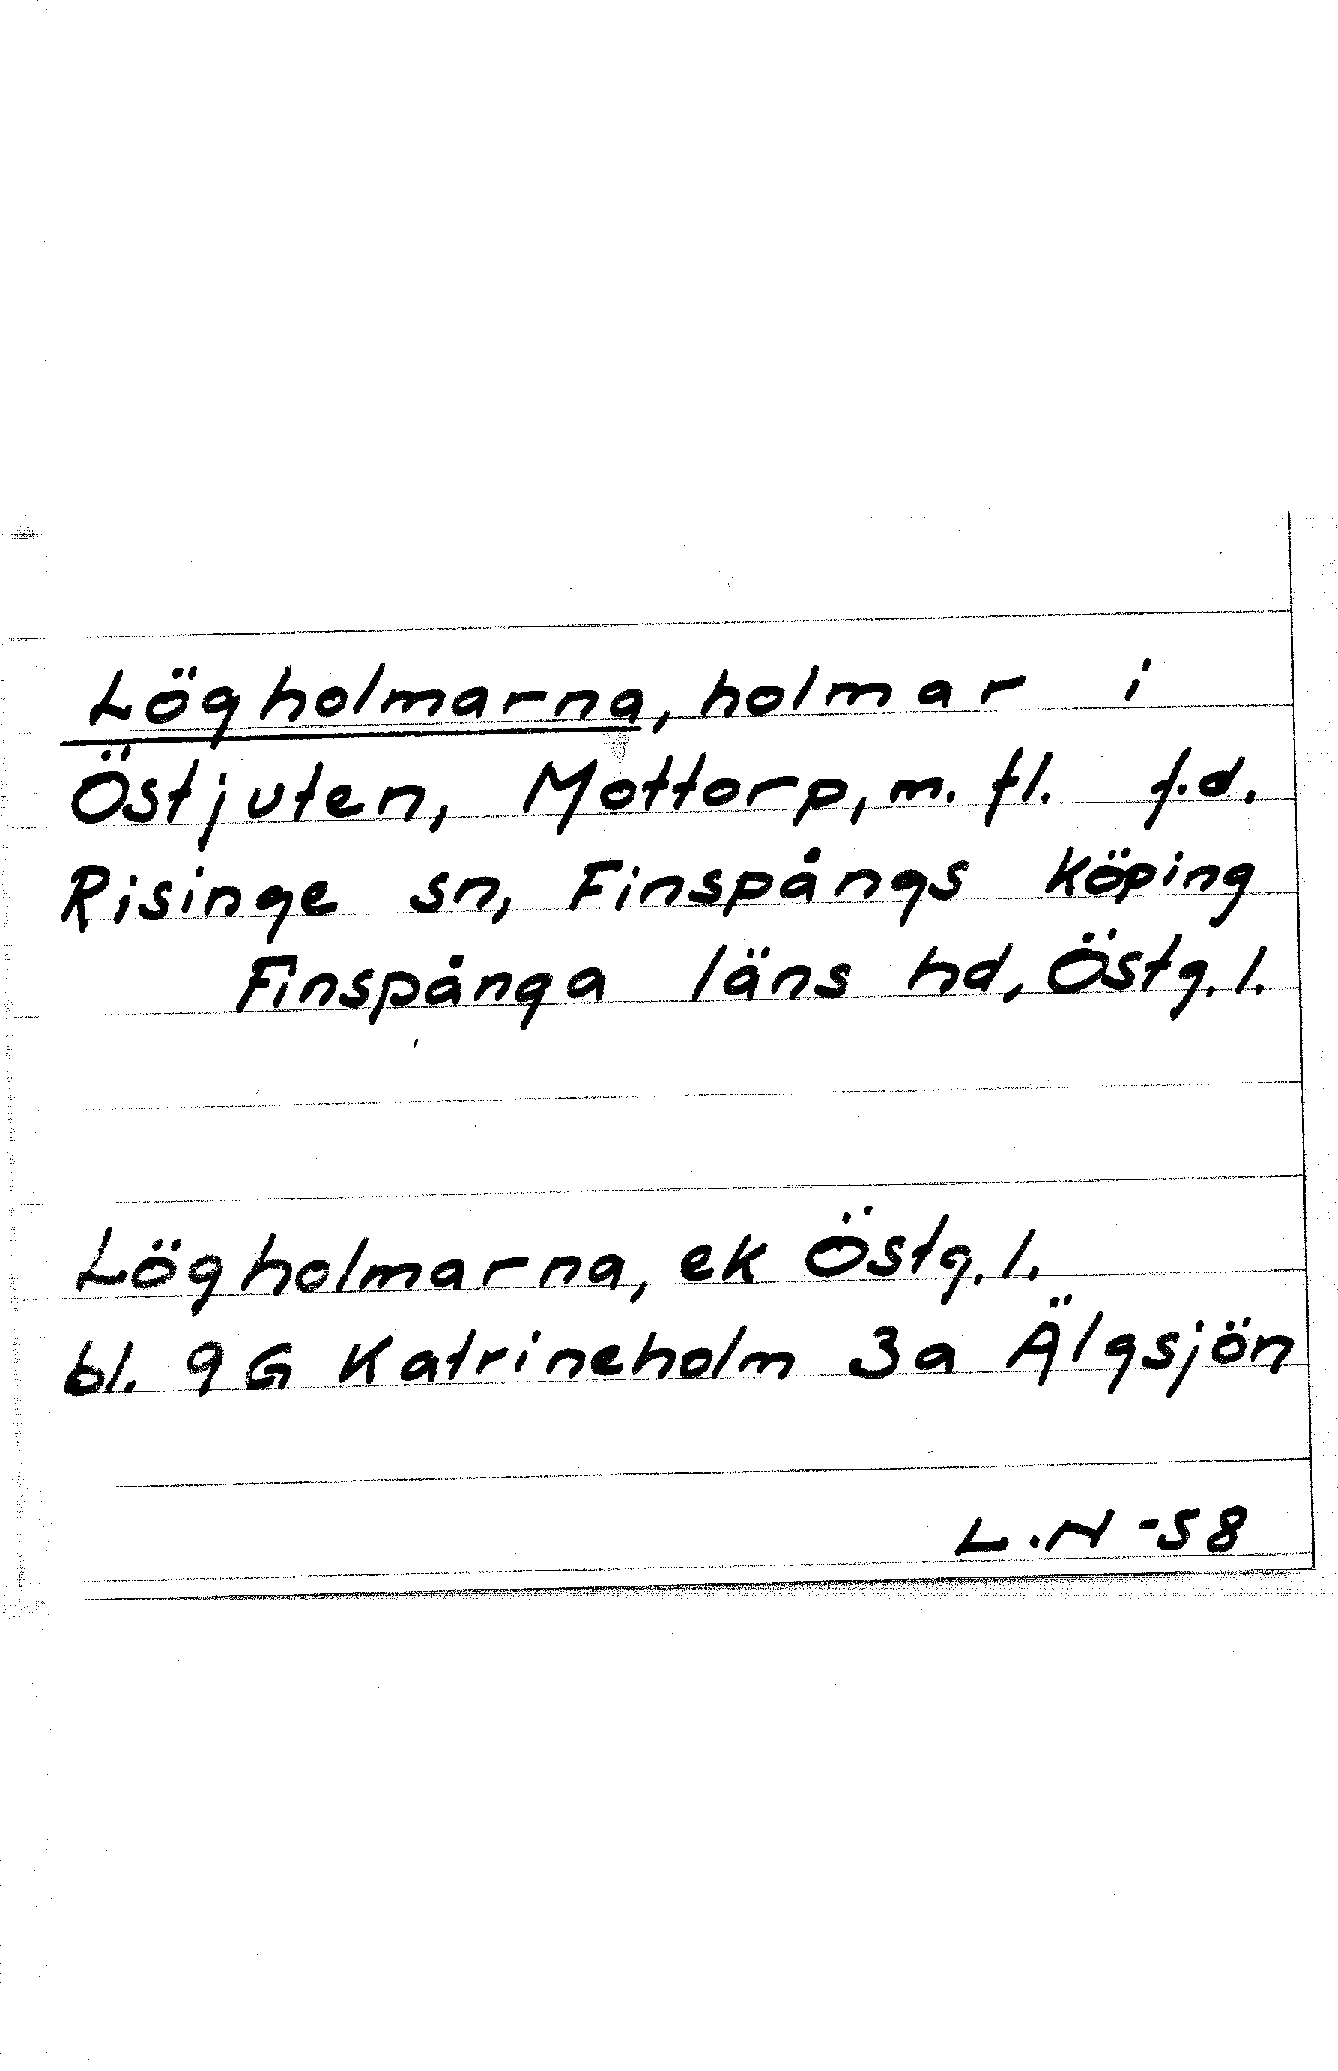 Lögholmarna, holmar i
Östjuten, Mottorp, m. fl. f.d.
Risinge sn, Finspångs köping
Finspånga läns hd, Östg. l.
Lögholmarna, ek Östg. l.
bl. 9G Katrineholm 3a Älgsjön
L.N -58